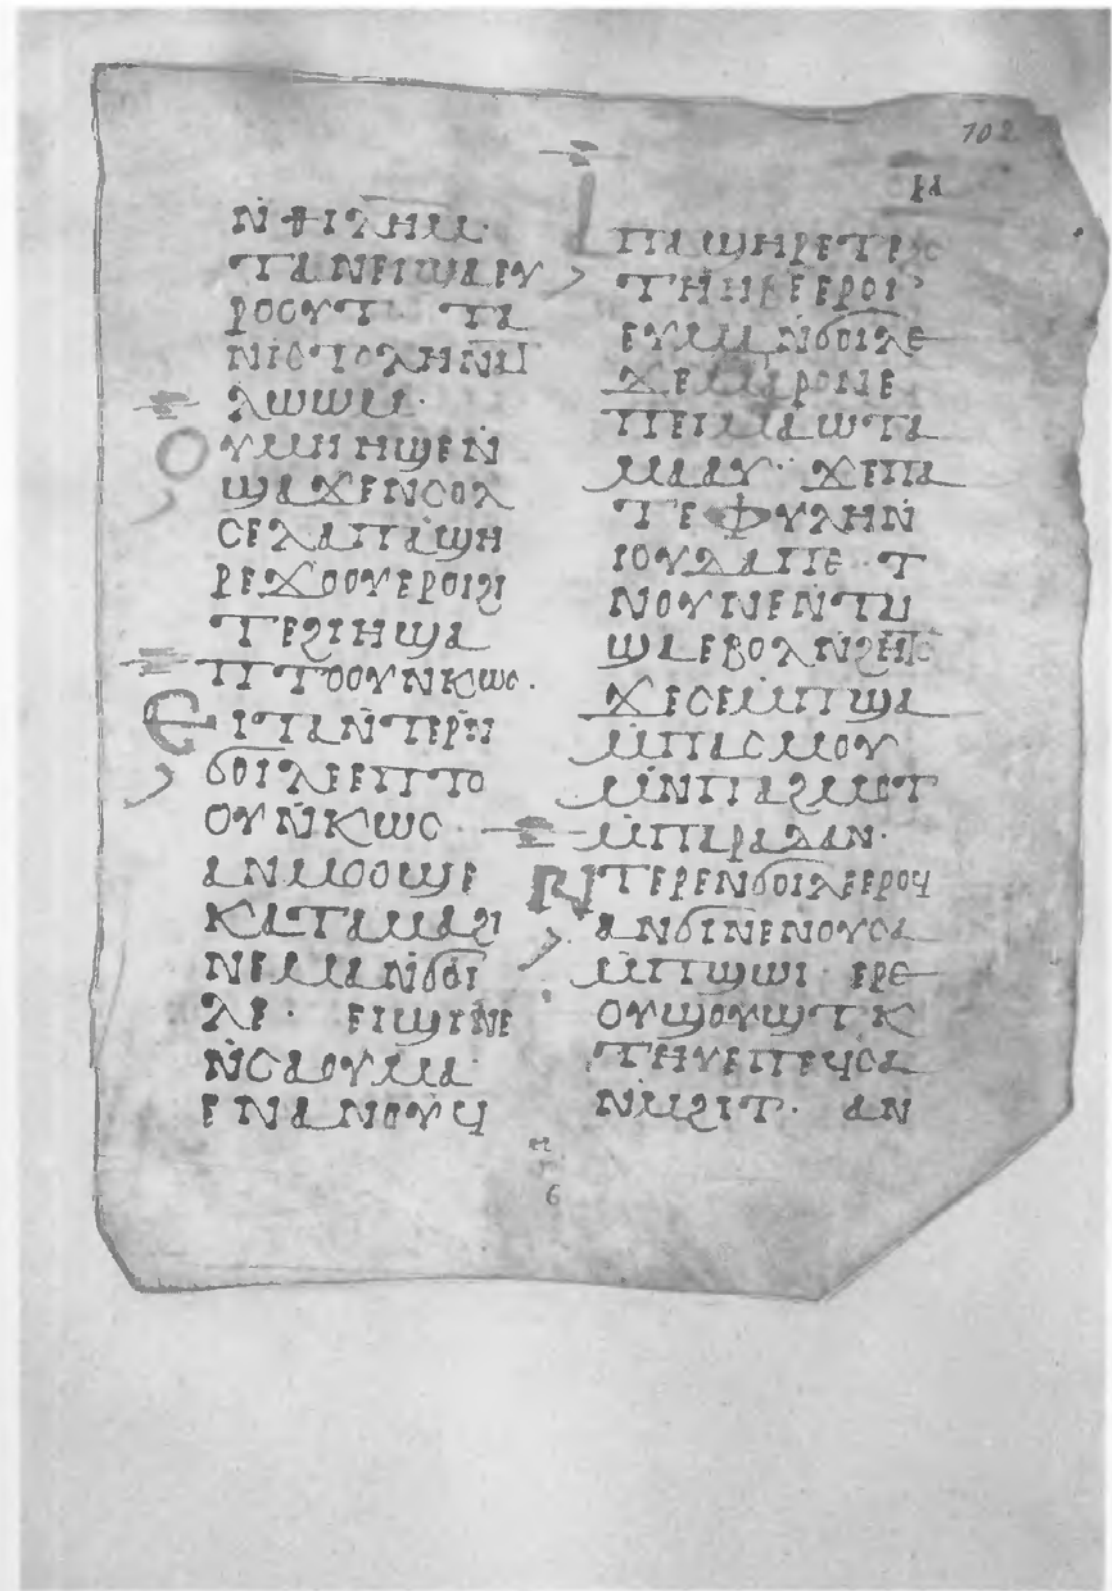 102
ⲣⲁ
ⲛ̇ⲑⲓⲗ̅ⲏ̅ⲙ̅·
ⲧⲁⲛⲉⲓϣⲁⲉⲩ
ⲣⲟⲟⲩⲧ· ⲧⲁ
ⲛⲓⲥⲧⲟⲗⲏⲛ̇ⲁ
ⲗⲱⲱⲙ·
ⲟⲩⲙⲏⲏϣⲉⲛ̇
ϣⲁϫⲉⲛⲥⲟⲗ
ⲥⲉⲗⲁⲡⲁϣⲏ
ⲣⲉϫⲟⲟⲩⲉⲣⲟⲓϩⲓ
ⲧⲉϩⲓⲏϣⲁ
ⲡⲧⲟⲟⲩⲛⲕⲱⲥ·
ⲉⲓⲧⲁⲛ̇ⲧⲉⲣⲛ̇
ϭⲟⲓⲗⲉⲉⲡⲧⲟ
ⲟⲩⲛ̇ⲕⲱⲥ·
ⲁⲛⲙⲟⲟϣⲉ
ⲕⲁⲧⲁⲙⲁϩⲓ
ⲛⲉⲙⲁⲛ̇ϭⲟⲓ
ⲗⲉ· ⲉⲓϣⲓⲛⲉ
ⲛ̇ⲥⲁⲟⲩⲙⲁ
ⲉⲛⲁⲛⲟⲩϥ
ⲡⲁϣⲏⲣⲉⲧⲉ
ⲧⲏⲛⲣⲉⲉⲣⲟⲓ
ⲉⲩⲙⲁⲛ̇ϭⲟⲓⲗⲉ
ϫⲉⲙⲡⲣⲟⲛⲉ
ⲡⲉⲓⲙⲁⲱⲧⲁ
ⲙⲁⲁⲩ· ϫⲉⲡⲁ
ⲧⲉⲫⲩⲗⲏⲛ̇
ⲓⲟⲩⲇⲁⲡⲉ· ⲧ
ⲛⲟⲩⲛⲉⲛ̇ⲧⲁ
ϣⲁⲉⲃⲟⲗⲛ̇ϩⲏⲧ
ϫⲉⲥⲉⲙ̇ⲡϣⲁ
ⲙ̇ⲡⲁⲥⲙⲟⲩ
ⲙⲛ̇ⲡⲁϩⲙⲟⲧ
ⲙ̇ⲡⲁⲣⲁⲇⲁⲛ·
ⲛ̇ⲧⲉⲣⲉⲛϭⲟⲓⲗⲉⲉⲣⲟϥ
ⲁⲛϭⲓⲛⲉⲛⲟⲩⲥⲁ
ⲙ̇ⲡϣⲱⲓ· ⲉⲣⲉ
ⲟⲩϣⲟⲩϣⲧⲕ
ⲧⲏⲩⲉⲡⲉϥⲥⲁ
ⲛ̇ⲙϩⲓⲧ· ⲁⲛ
6